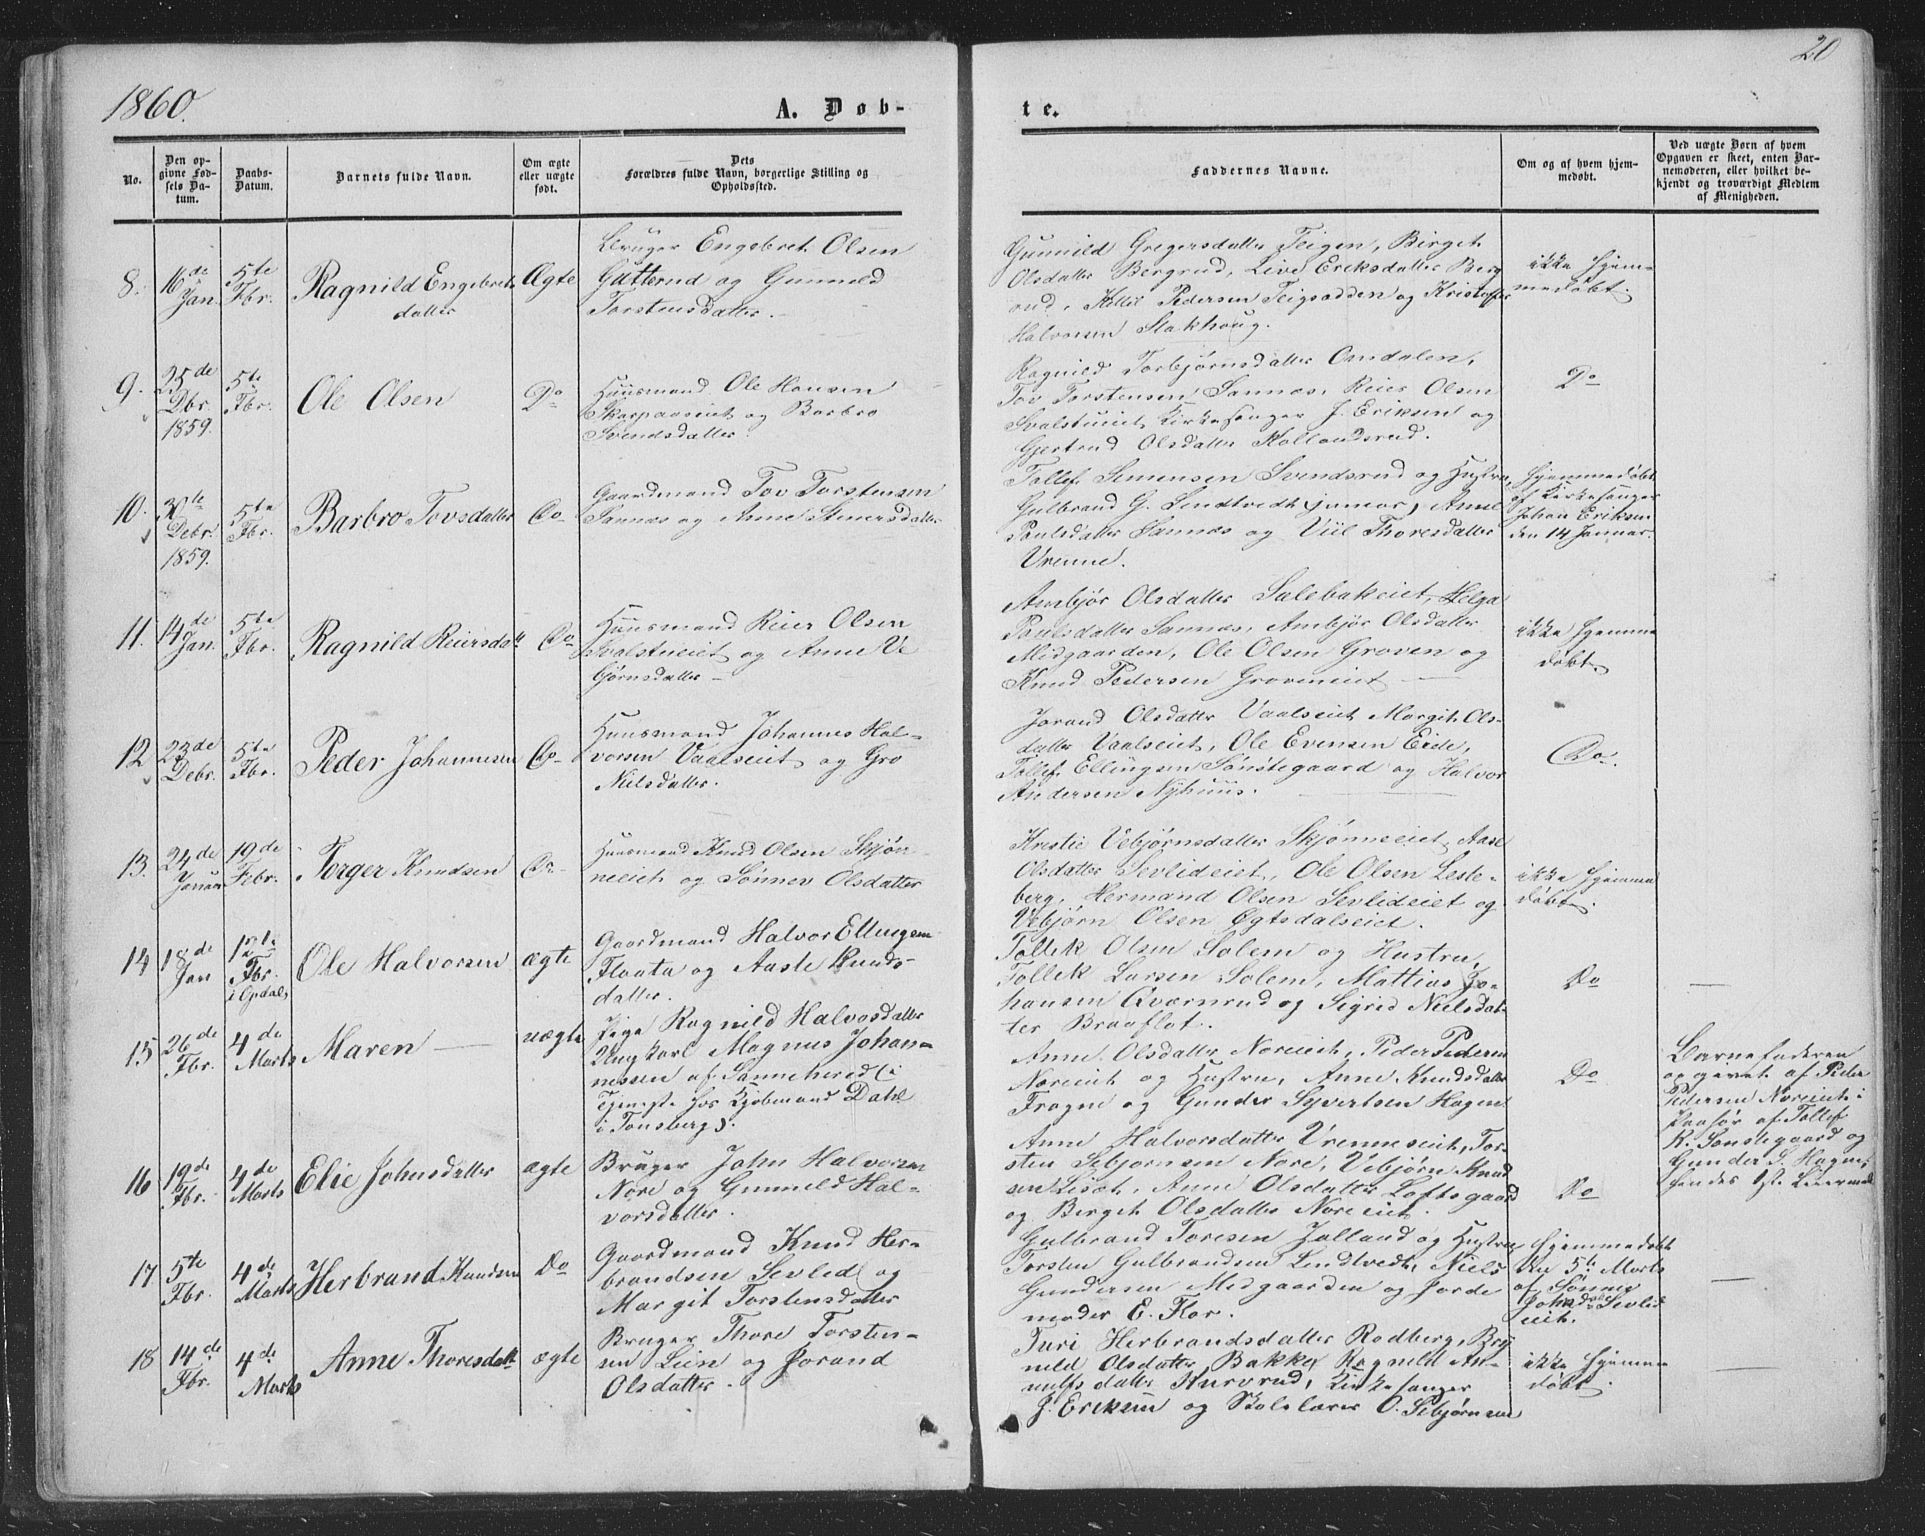 1860.
A. Døb-
te.
20
No.
Den op-
givne Fød-
sels Da-
tum.
Daabs-
Datum.
Barnets fulde Navn.
Om ægte
eller uægte
født.
Dets
Forældres fulde Navn, borgerlige Stilling og
Opholdssted.
Faddernes Navne.
Om og af hvem hjem-
medøbt.
Ved uægte Børn af hvem
Opgaven er skeet, enten Bar-
nemoderen, eller hvilket be-
kjendt og troværdigt Medlem
af Menigheden.
8.
16de
Jan
5te
Fbr.
Ragnild Engebrets
datter
Ægte
Bruger Engebret Olsen
Gutterud og Gunnild
Torstensdatter.
Gunnild Gregersdatter Teigen, Birgit
Olsdatter Bergrud, Live Eriksdatter Berg
rud, Kittil Pedersen Teigsødden og Kristoffer
Halvorsen Stakhoug.
ikke hjem-
medøbt.
9.
25de
Dbr.
1859.
5te
Fbr.
Ole Olsen
Do
Huusmand Ole Hansen
Skarpaaseiet og Barbro
Svendsdatter.
Ragnild Torbjørnsdatter Omdalen,
Tov Torstensen Sannæs, Reier Olsen
Svalstueiet, Kirkesanger J. Eriksen og
Gjertrud Olsdatter Kollandsrud.
Do
10.
30te
Debr.
1859.
5te
Fbr.
Barbro Tovsdatter
Do
Gaardmand Tov Torstensen
Sannæs og Anne Steners datter
Tollef Simensen Svendsrud og Hustru,
Gulbrand G. Lindtvedt junior, Anne
Poulsdatter Sannæs og Viil Thoresdatter
Vrenne.
Hjemmedøbt
af Kirkesanger
Johan Eriksen
den 14 Januar.
11.
14de
Jan.
5te
Fbr.
Ragnild Reiersdatt
Do
Huusmand Reier Olsen
Svalstueiet og Anne Ve
bjørnsdatter
Ambjør Olsdatter Salebakeiet, Helga
Poulsdatter Sannæs, Ambjør Olsdatter
Midgaarden, Ole Olsen Groven og
Knud Pedersen Groveneiet
ikke hjemme
døbt.
12
23de
Debr.
5te
Fbr.
Peder Johannesen
Do
Huusmand Johannes Hal-
vorsen Vaalseiet og Gro
Nilsdatter.
Jorand Olsdatter Vaalseiet Margit Ols-
datter Vaalseiet, Ole Evensen Eide,
Tollef Ellingsen Sønstegaard og Halvor
Andersen Nyhuus.
Do.
13.
24de
Januar
19de
Febr.
Torger Knudsen
Do
Huusmand Knud Olsen Skjøn
neeiet og Sønnev Olsdatter
Kristie Vebjørnsdatter Skjønneeiet, Aase
Olsdatter Sevlideiet, Ole Olsen Leste-
berg, Hermand Olsen Sevlideiet og
Vebjørn Olsen Øgtsdalseiet.
ikke hjemme
døbt.
14
18de
Jan
12te
Fbr.
i Opdal,
Ole Halvorsen
ægte
Gaardmand Halvor Ellingsen
Flaata og Aaste Knuds-
datter.
Tollek Olsen Solem og Hustru,
Tollek Larsen Solem, Mattias Jo-
hansen Qværnrud og Sigrid Nielsdat-
ter Braaflot.
Do
15
26de
Fbr.
4de
Marts
Maren
uægte
Pige Ragnild Halvorsdatter
Ungkarl Magnus Johan-
nessen af Sannehered (i
Tjeneste hos Kjøbmand Dahl
i Tønsberg).
Anne Olsdatter Noreeiet, Peder Pedersen
Noreeiet og Hustru, Anne Knudsdatter
Fragne og Gunder Syvertsen Hagen
Do
Barnefaderen
opgivet af Peder
Pedersen Noreeiet i
Paahør af Tollef
K. Sønstegaard og
Gunder S. Hagen,
hendes 1ste Leiermaal
16
19de
Fbr.
4de
Marts
Elie Johnsdatter
ægte
Bruger John Halvorsen
Nore og Gunnild Hal-
vorsdatter.
Anne Halvorsdatter Vrenneeiet, Tor-
sten Sebjørnsen Nore, Vebjørn Knud
sen Liset, Anne Olsdatter Loftsgaard
og Birgit Olsdatter Noreeiet.
Do
17
5te
Fbr.
4de
Marts
Herbrand Knudsen
Do
Gaardmand Knud Her-
brandsen Sevled og
Margit Torstensdatter
Gulbrand Toresen Jolland og Hustru
Torsten Gulbrandsen Lindtvedt, Niels
Gundersen Midgaarden og Jorde
moder E. Flor.
Hjemmedøbt
den 5te Marts
af Sønnev
Johnsd. Sevlid
eiet.
18
14de
Fbr.
4de
Marts
Anne Thoresdatt
ægte
Bruger Thore Torsten-
sen Lein og Jorand
Olsdatter.
Turi Herbrandsdatter Rødberg, Bry
nild Olsdatter Bakke, Ragnild An-
nulfs datter Kurvrud, Kirkesanger
J. Eriksen og Skolelærer O. Sebjørnsen
ikke hjemme
døbt.